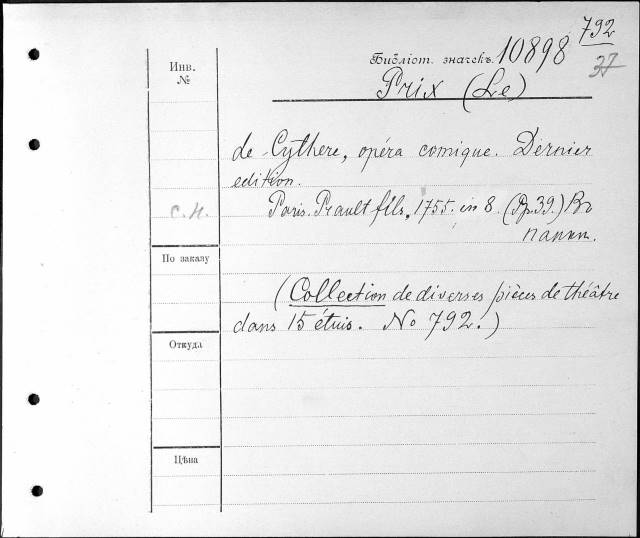 792
Инв.
№
Библіот. значекъ 10898
37
Prix (Le)
de Cythere, opéra comique. Dernier
edition.
Paris. Prault fils, 1755. in 8. (Pp. 39.) Въ
папкѣ.
С.Н.
По заказу
(Collection de diverses pièces de théâtre
dans 15 étuis. No 792.)
Откуда
Цѣна